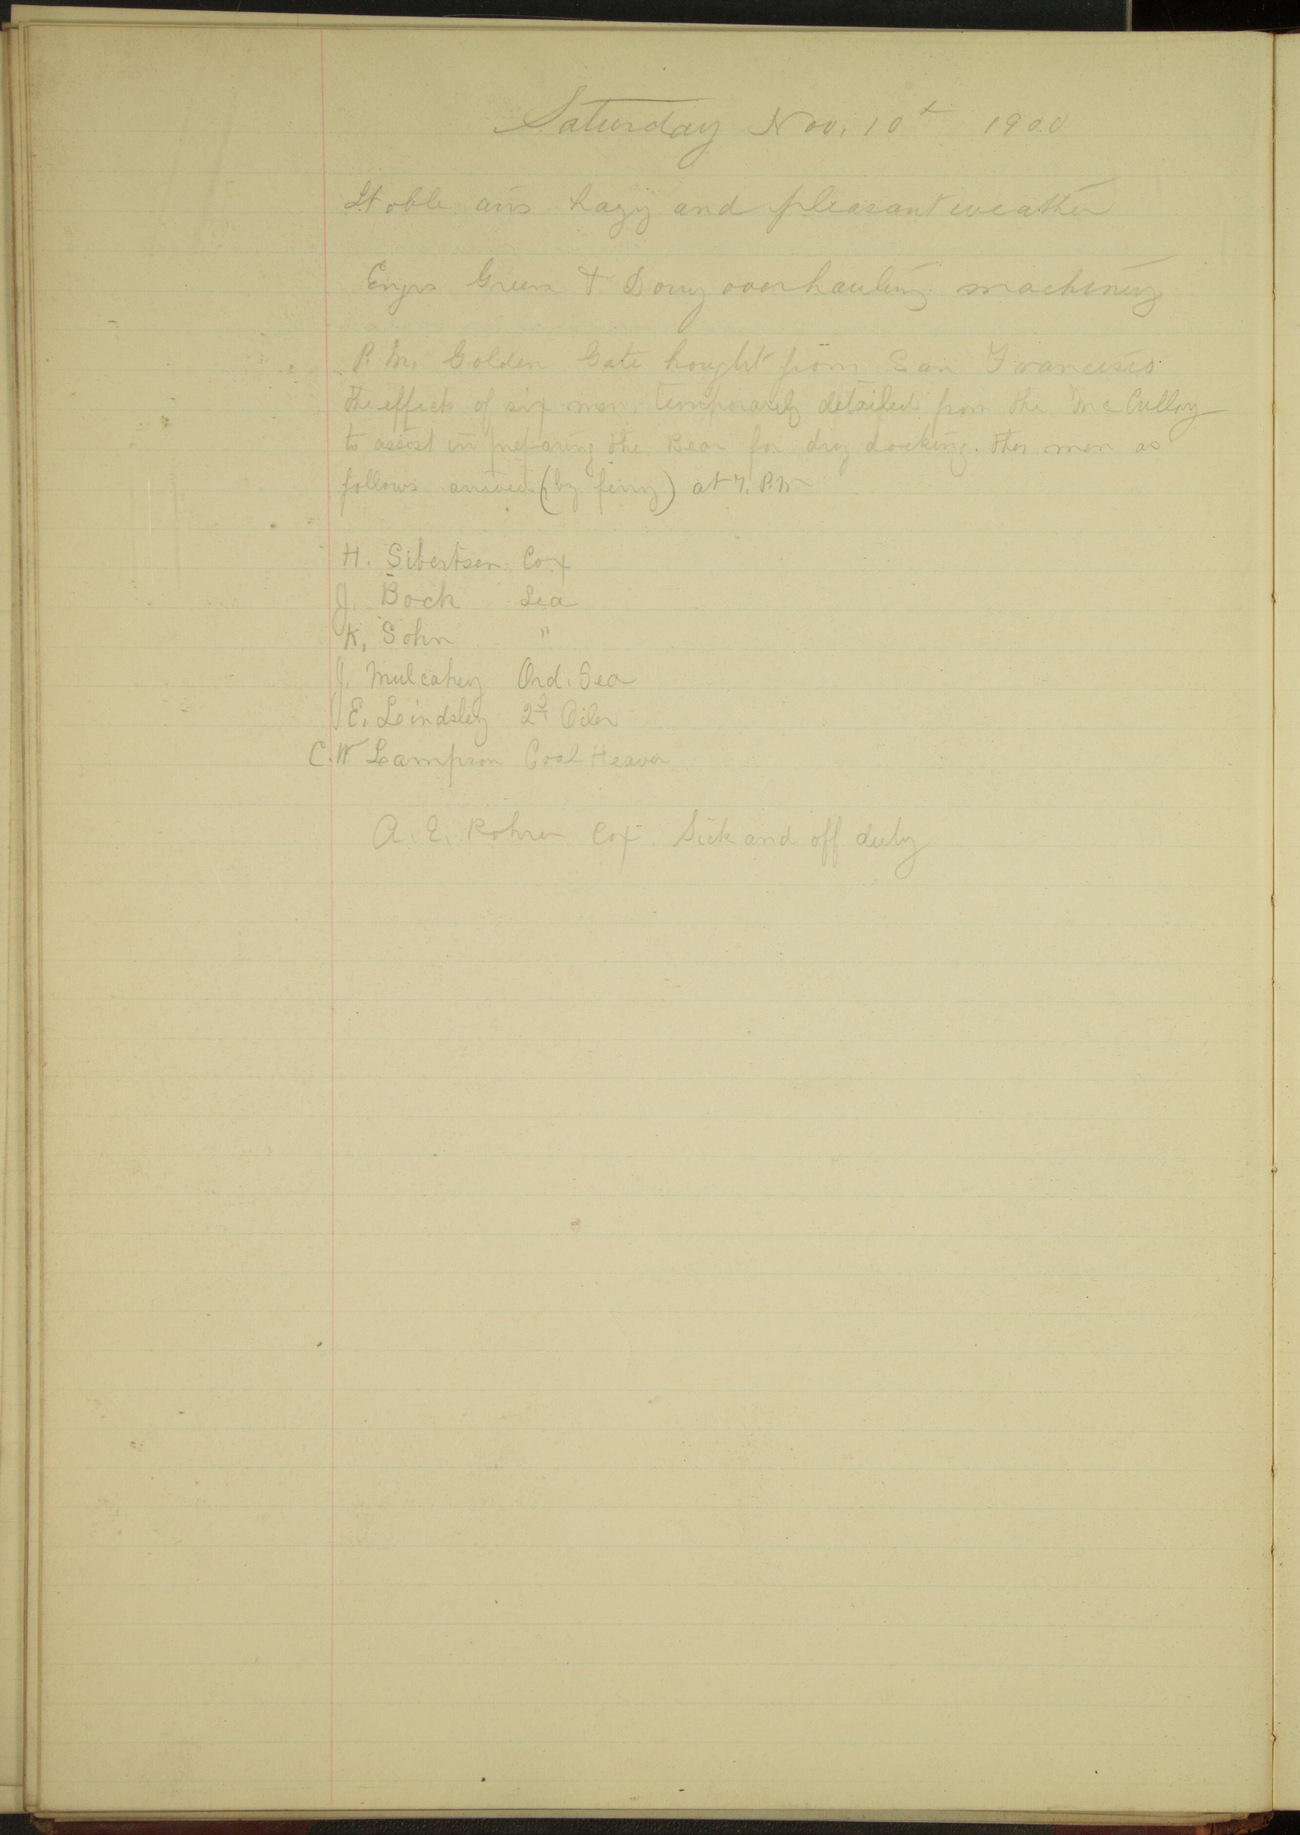 Saturday Nov. 10th 1900
Stable airs hazy and pleasant weather
Engrs Green & Dorry overhauling machinery
P.M. Golden Gate bought from San Francisco
the effects of six men temporarily detailed from the McCulloy
to assist in preparing the Bear for dry docking. The men as
follows arrived (by ferry) at 7. P.M
H. Sibertsen Cox
J. Bock Sea
K. Sohn "
J. Mulcahey Ord. Sea
E. Leindsley 2d Oiler
C.W Lampson Coal Heaver
A. E. Rohrer Cox. Sick and off duty